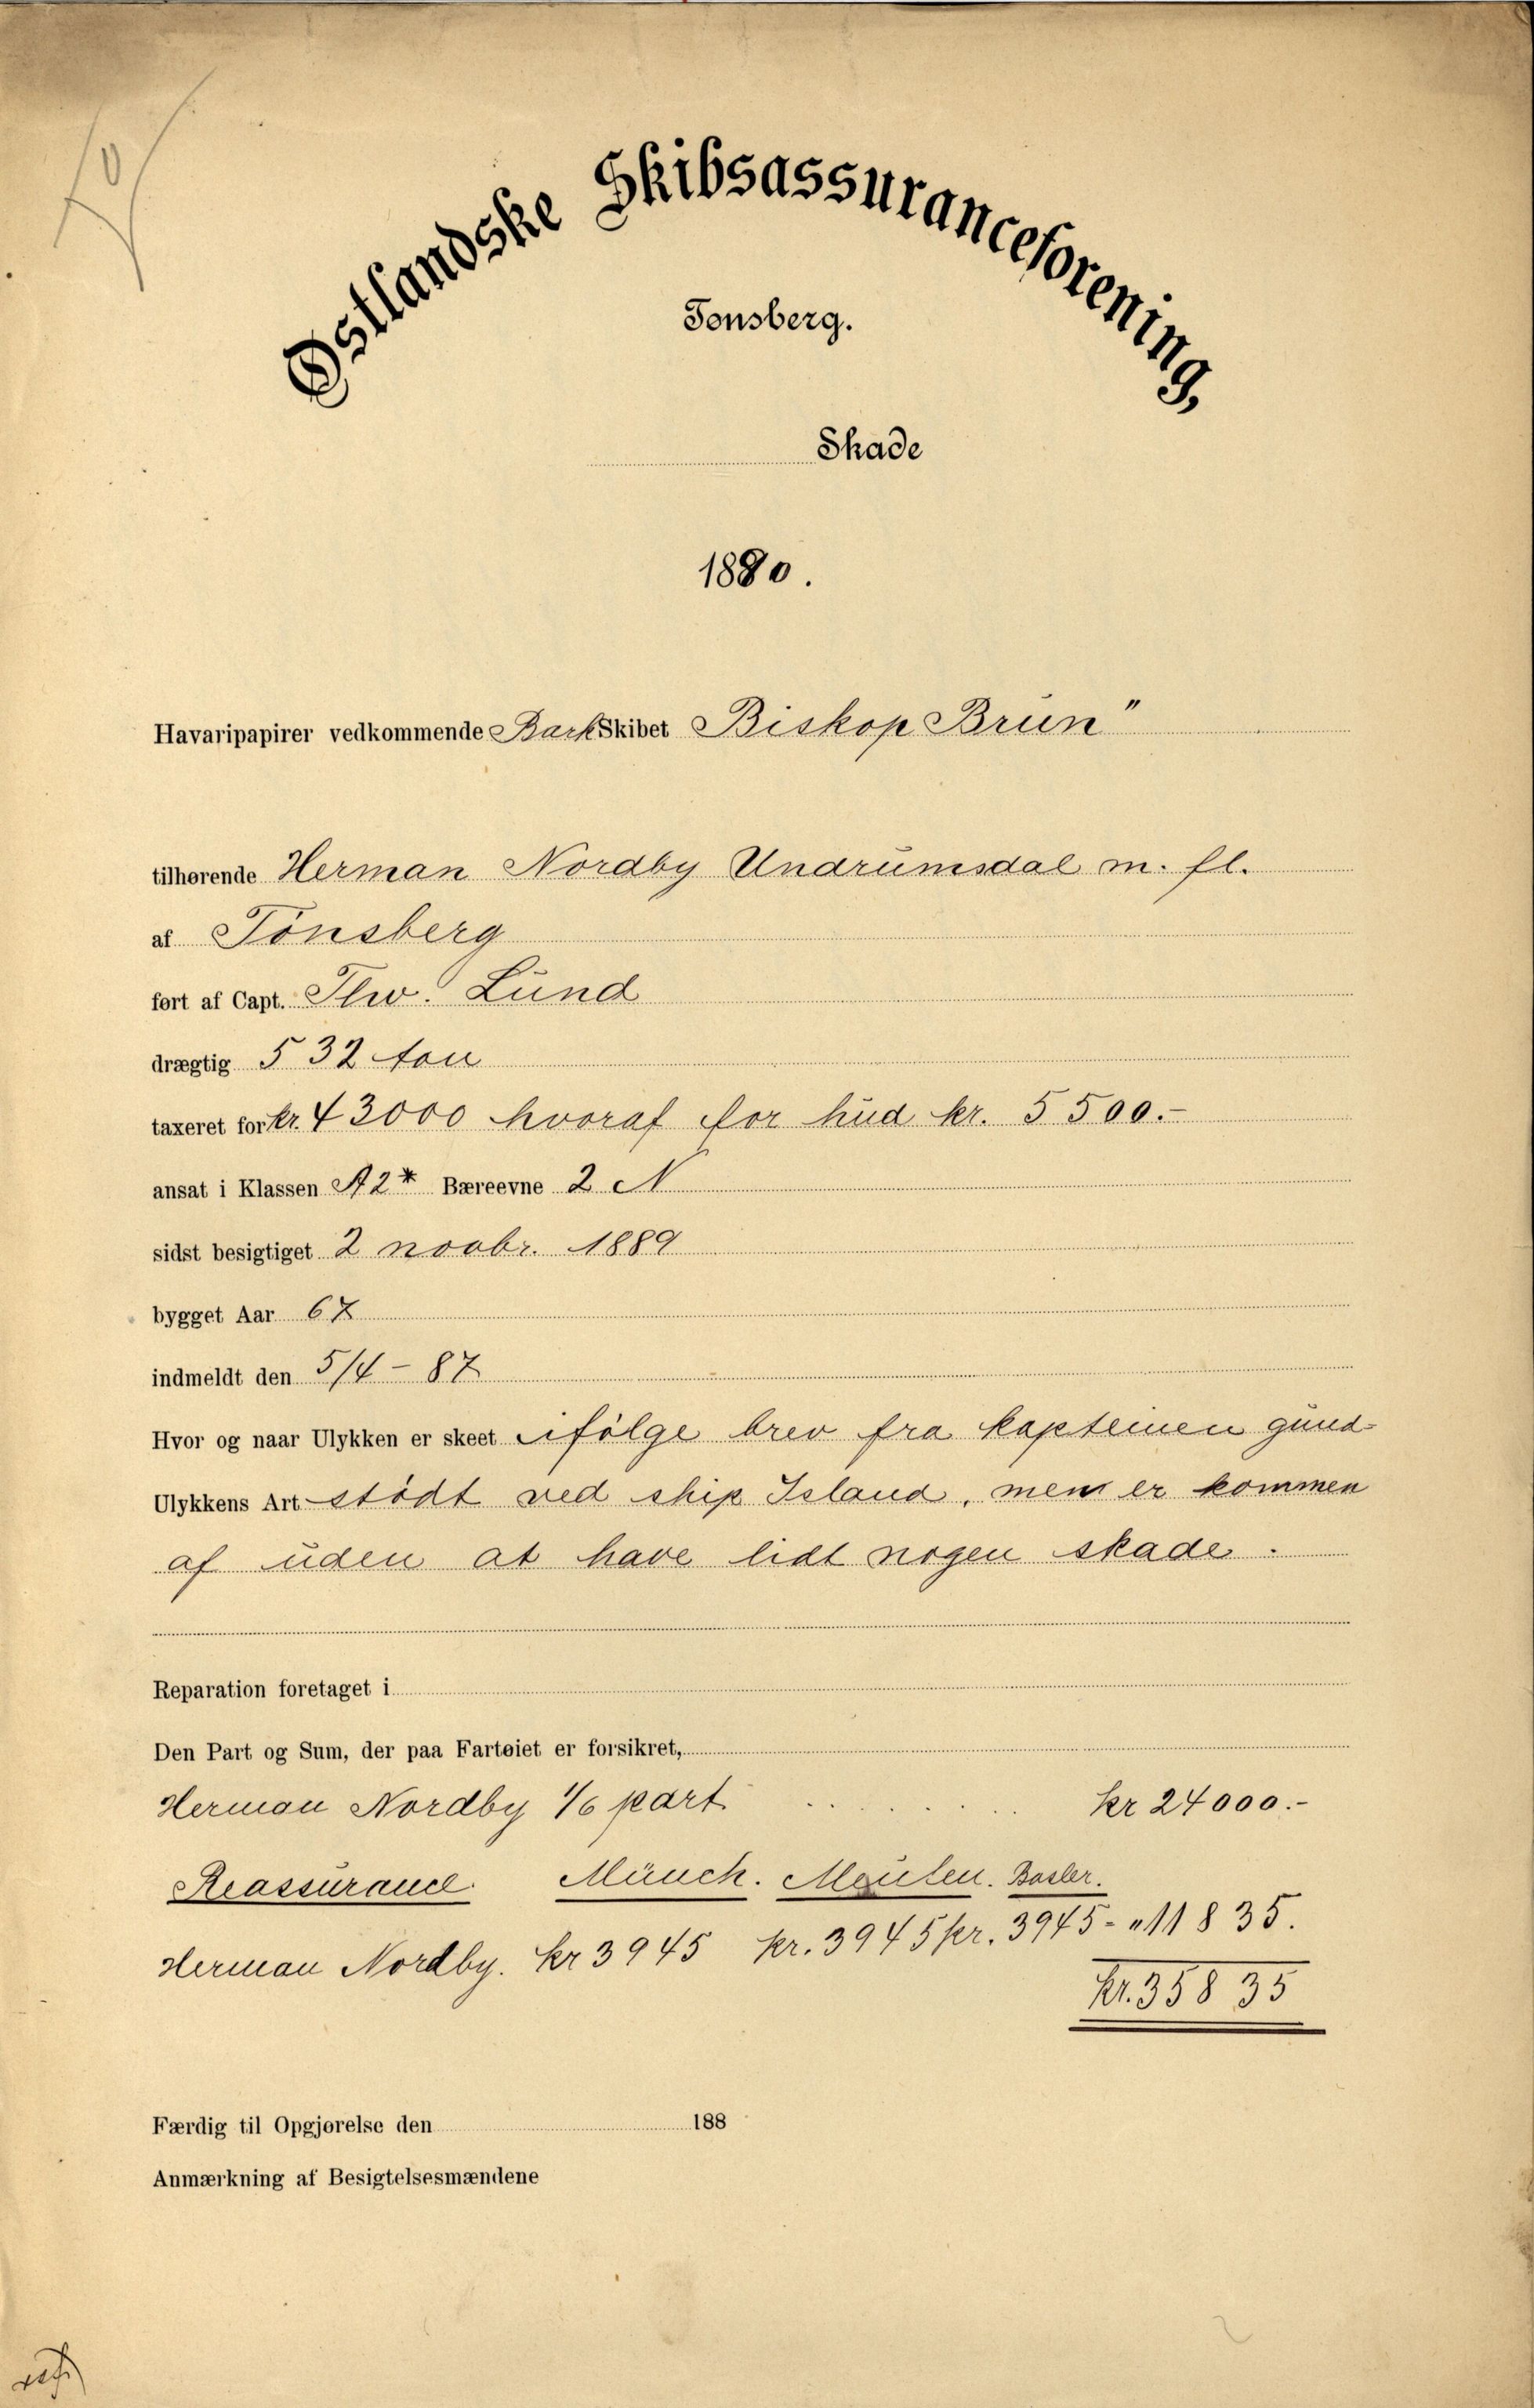 Østlandske Skibsassuranceforening,
Tønsberg.
Skade
1890.
Havaripapirer vedkommende Bark Skibet Biskop Brun"
tilhørende Herman Nordby Undrumsdal m. fl.
af Tönsberg
ført af Capt. Thv. Lund
drægtig 532 ton
taxeret for kr. 43000 hvoraf for hud kr. 5500.-
ansat i Klassen A2* Bæreevne 2 N
sidst besigtiget 2 novbr. 1889
bygget Aar 67
indmeldt den 5/4 - 87
Hvor og naar Ulykken er skeet ifölge brev fra kapteinen gund-
Ulykkens Art stödt ved ship Island, men er kommen
af uden at have lidt nogen skade.
Reparation foretaget i
Den Part og Sum, der paa Fartøiet er forsikret,
Herman Nordby 1/6 part. . . . . . . . kr 24000.-
Reassurance. Münch. Basler.
Herman Nordby. kr 3945 kr. 3945 kr. 3945 - " 11835.
kr. 35835
Færdig til Opgjørelse den 188
Anmærkning af Besigtelsesmændene